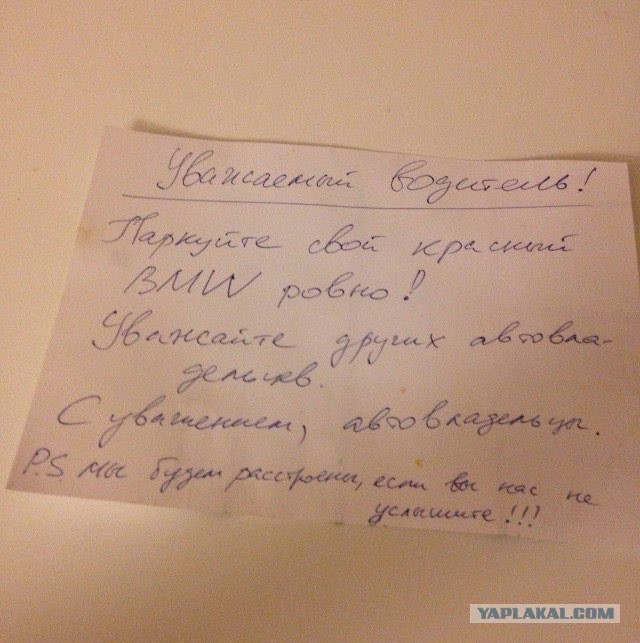 Уважаемый водитель!
Паркуйте свой красный
BMW ровно!
Уважайте других автовла-
дельцев.
С уважением, автовладельцы.
P.S. мы будем расстроены, если вы нас не
услышите!!!
YAPLAKAL.COM